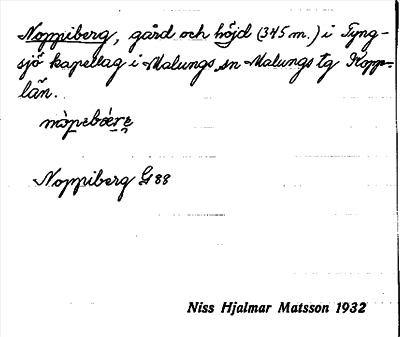 Noppiberg, gård och höjd (345 m.) i Tyng-
sjö kapellag i Malungs sn Malungs tg Kopp.
län.
Noppiberg G88
Niss Hjalmar Matsson 1932